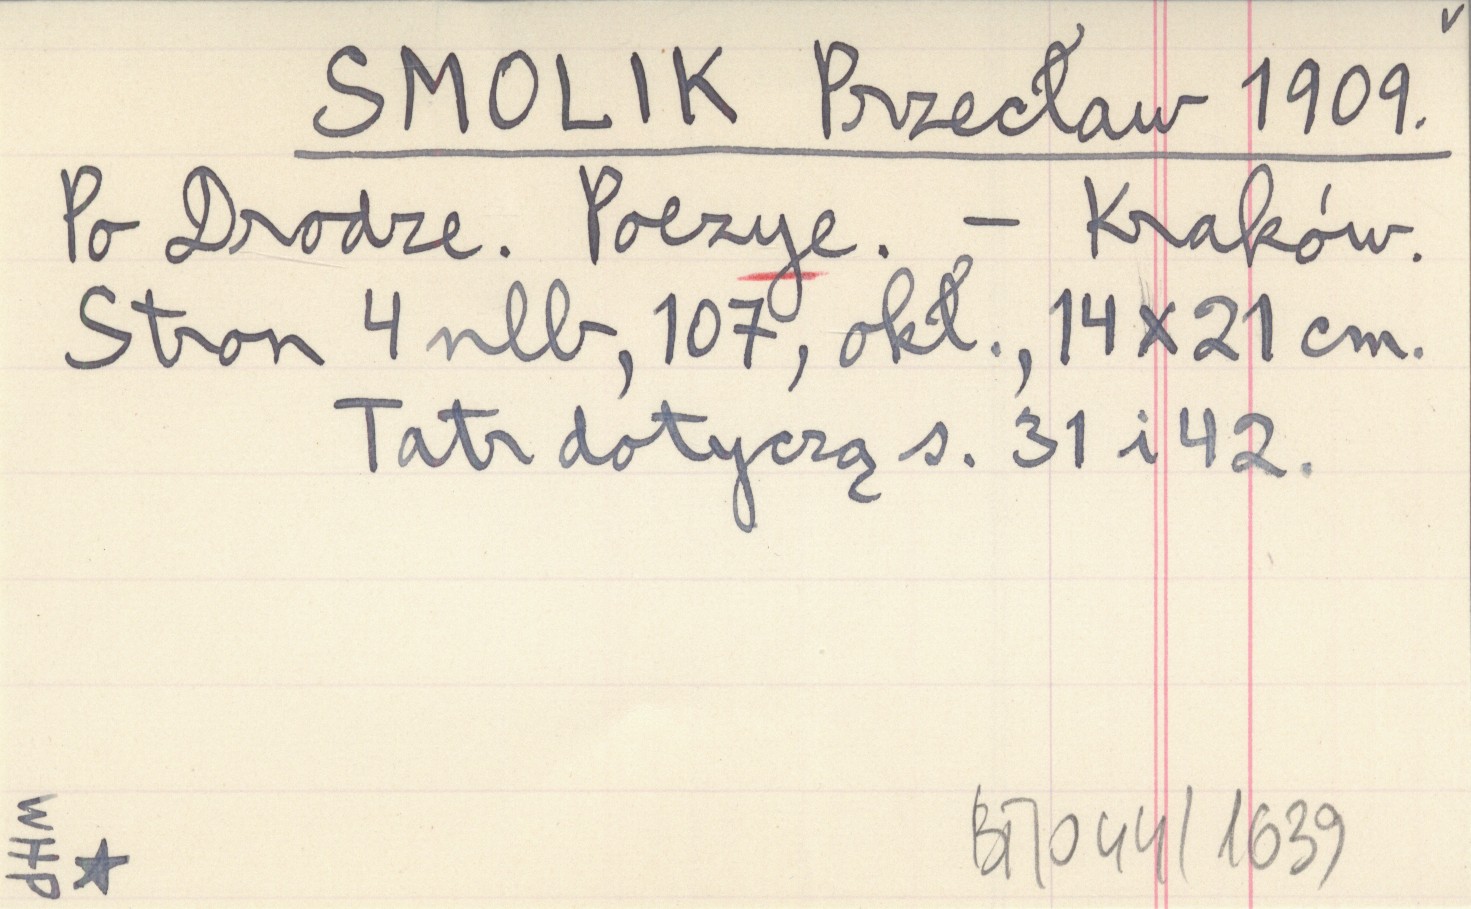 SMOLIK Przecław 1909.
Po Drodze. Poezye. - Kraków.
Stron 4 nlb, 107, okł., 14x21 cm.
Tatr dotyczą s. 31 i 42.
WHP
044/1639